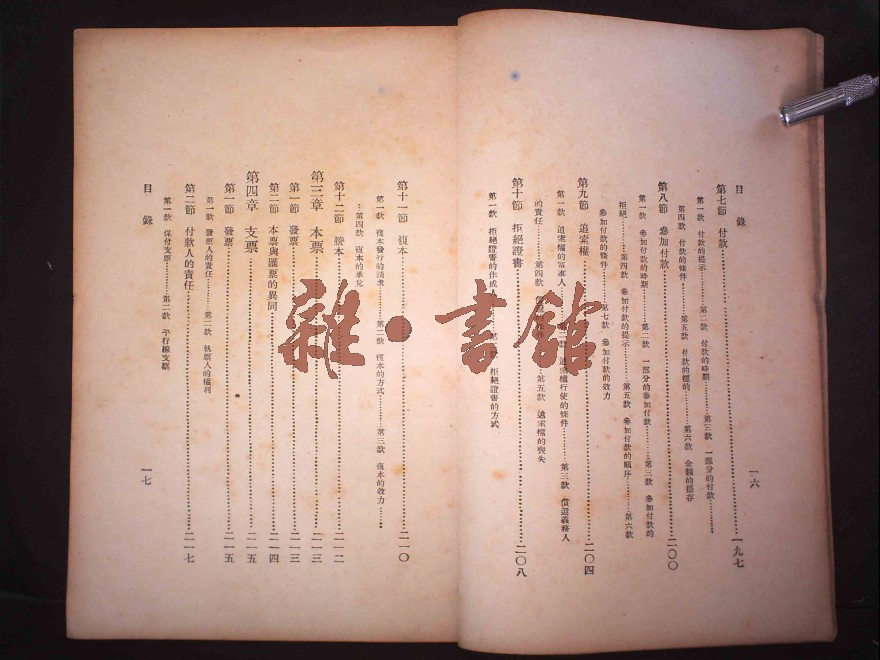 目錄
一六
第七節 付款……一九七
第一款 付款的提示……第二款 付款的時期……第三款 一部分的付款……
第四款 付款的條件……第五款 付款的標的……第六款 金額的提存
第八節 參加付款……二〇〇
第一款 參加付款的時期……第二款 一部分的參加付款……第三款 參加付款的
拒絕……第四款 參加付款的提示……第五款 參加付款的順序……第六款
參加付款的條件……第七款 參加付款的效力
第九節 追索權……二〇四
第一款 追索權的當事人……追索權行使的條件……第三款 償還義務人
的責任……第四款……第五款 追索權的喪失
第十節 拒絕證書……二〇八
第一款 拒絕證書的作成人……拒絕證書的方式
第十一節 複本……二一〇
第一款 複本發行的請求……第二款 複本的方式……第三款 複本的效力……
…第四款 複本的承兌
第十二節 謄本……二一二
第三章 本票……二一三
第一節 發票……二一三
第二節 本票與匯票的異同……二一四
第四章 支票……二一五
第一節 發票……二一五
第一款 發票人的責任……第二款 執票人的權利
第二節 付款人的責任……二一七
第一款 保付支票……第二款 平行線支票
目錄
一七
雜·書館